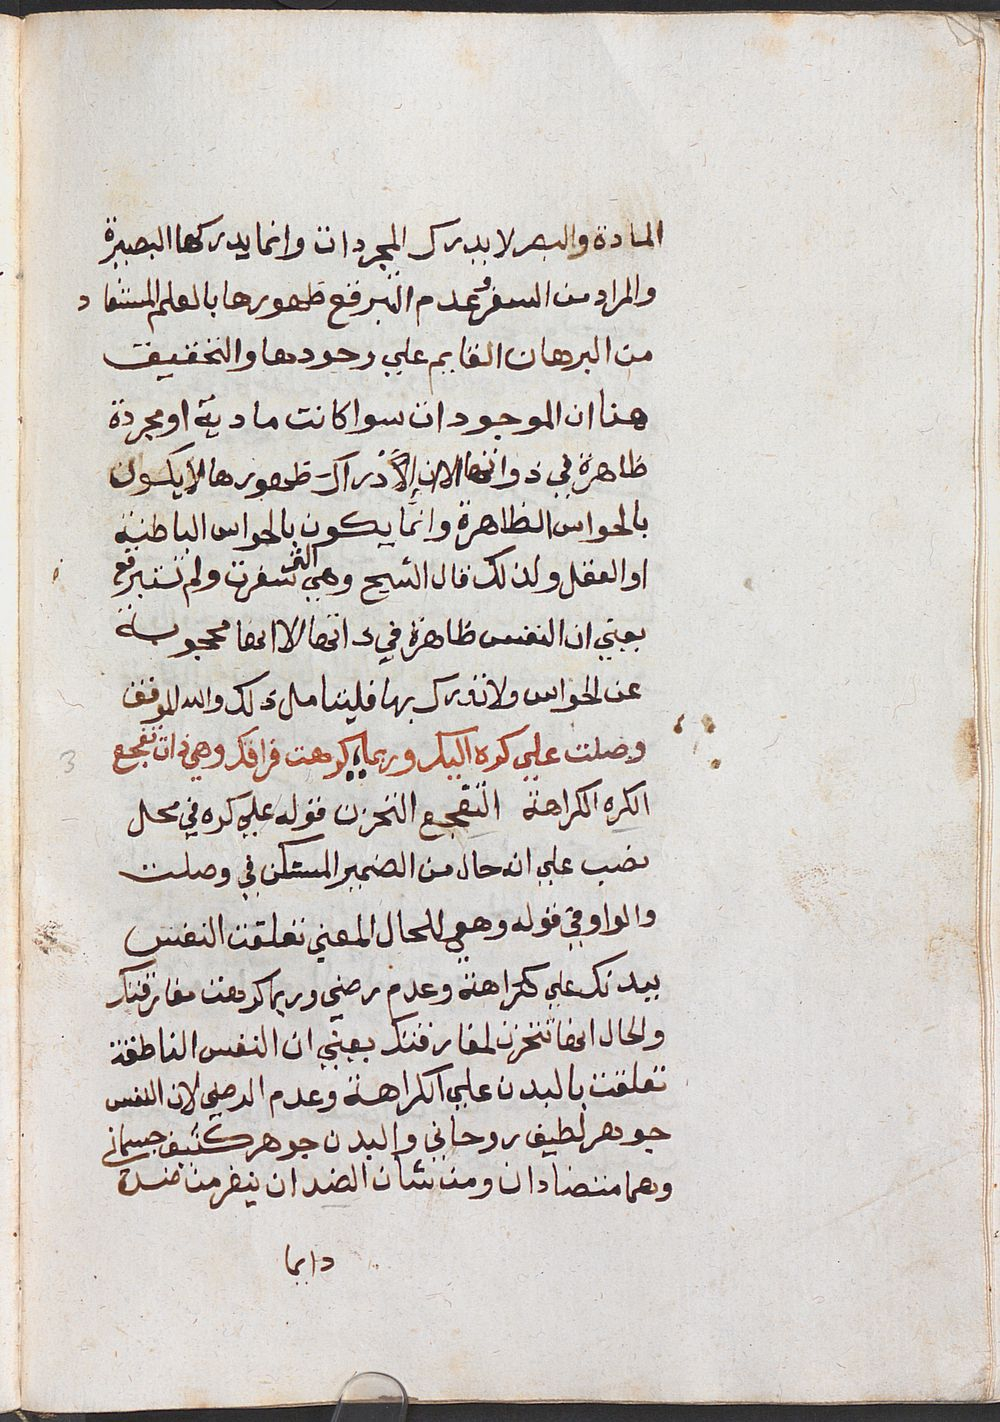 المادة والبصر لا يدرك المجردات وانما يدركها البصيرة
والمراد من السفر وعدم التبرقع ظهورها بالعلم المستفاد
من البرهان القايم علي وجودها والتحقيق
هنا ان الموجودات سوا كانت مادية او مجردة
ظاهرة في ذواتها الان إلا دراك ظهورها لا يكون
بالحواس الظاهرة وانما يكون بالحواس الباطنة
او العقل ولذلك قال الشيخ وهي التي سفرت ولم تتبرقع
يعني ان النفس ظاهرة في ذاتها الا انها محجوبة
عن الحواس ولا تدرك بها فليتامل ذلك والله الموفق
وصلت علي كره اليك وربما كرهت فراقك وهي ذات تفجع
الكره الكراهة التفجع التحزن قوله علي كره في محل
نصب علي انه حال من الضمير المستكن في وصلت
والواو في قوله وهي للحال المعني تعلقت النفس
ببدنك علي كراهة وعدم رضي وربما كرهت مفارقتك
والحال انها تتحزن لمفارقتك يعني ان النفس الناطقة
تعلقت بالبدن علي الكراهة وعدم الرضي لان النفس
جوهر لطيف روحاني والبدن جوهر كثيف جسماني
وهما متضادان ومن شان الضد ان ينفر من ضده
دايما
3